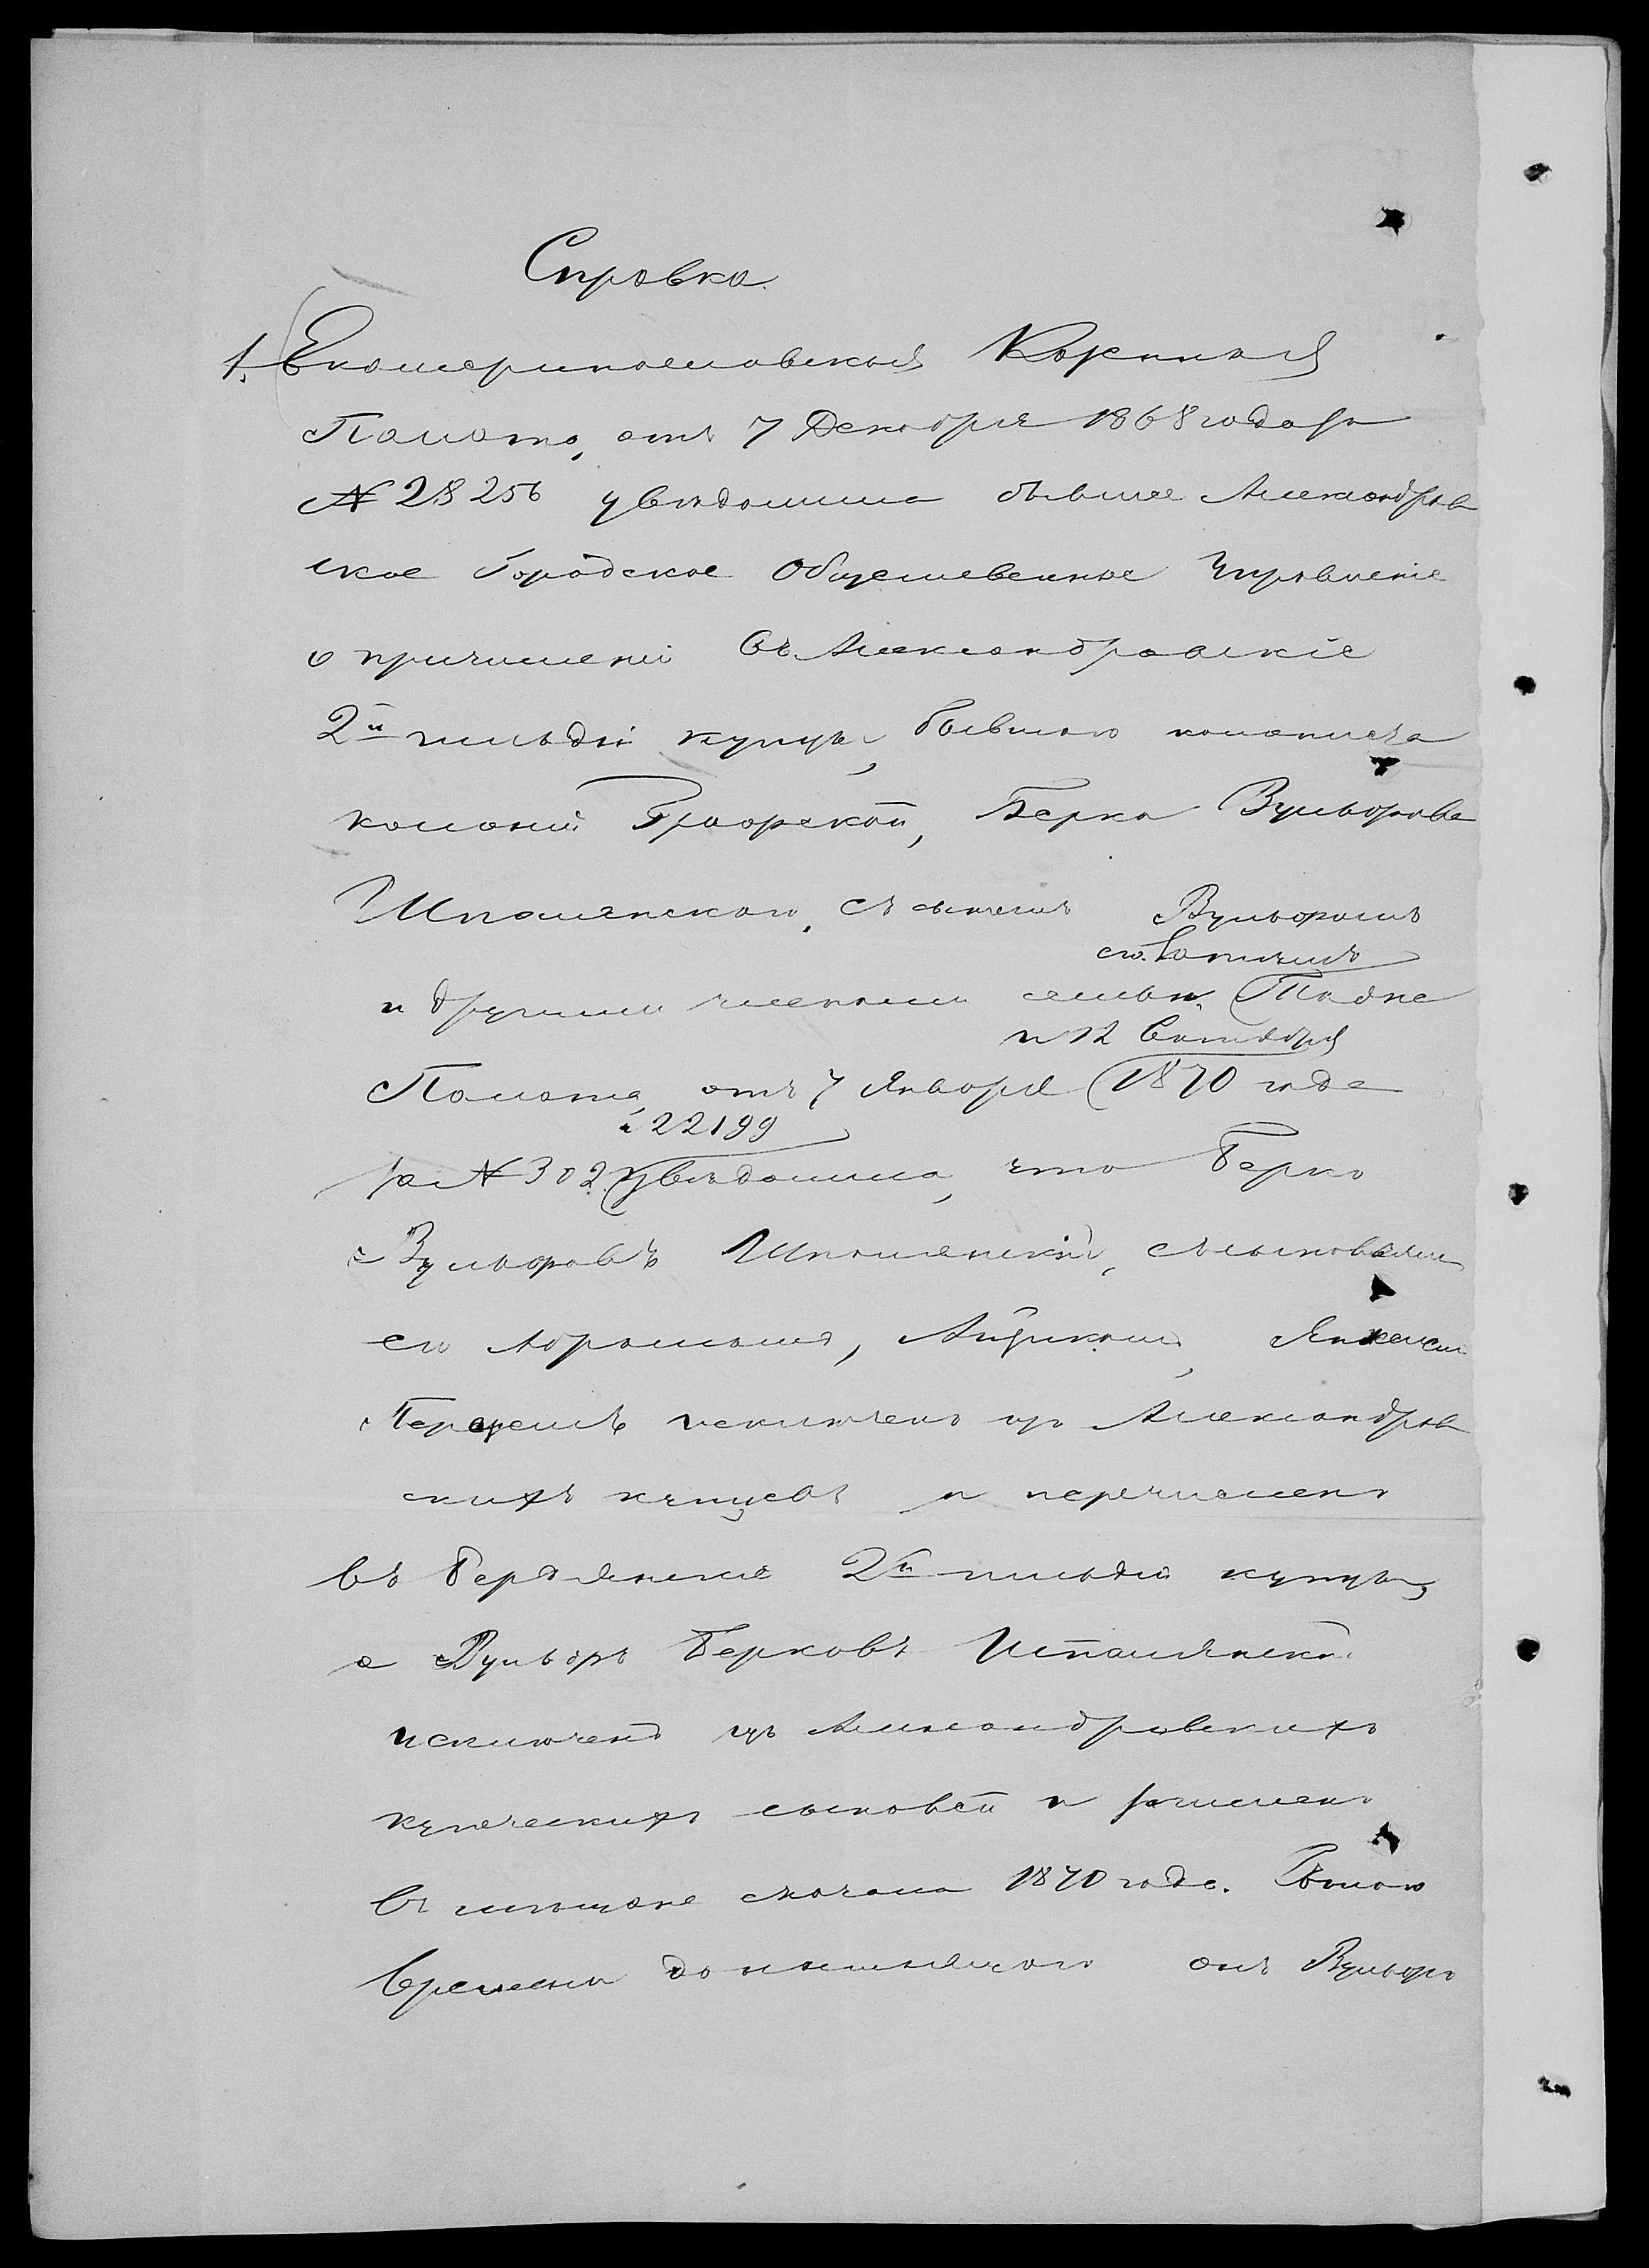 Справка.
1. Екатеринославская Казенная
Палата, отъ 7 Декабря 1868 года за
№ 28256 увѣдомила бывшее Александров
ское Городское Общественное Управленіе
о причисленіи въ Александровскіе
2й гильдіи купцы, бывшаго колониста
колоніи Графской, Берка Вульфова
Шполянскаго, съ сыномъ Вульфомъ
и другими членами семьи. Та же
и 12 Октября
Палата, отъ 7 Января 1870 года
и 22199
за № 302 увѣдомила, что Берко
Вульфовъ Шполянскій, съ сыновьями
его Абрамомъ, Айзикомъ,
исключенъ изъ Александров
скихъ купцовъ и перечисленъ
въ Бердянскіе 2й гильдіи купцы,
а Вульфъ Берковъ Шполянскій
исключенъ изъ Александровскихъ
купеческихъ сыновей и зачисленъ
въ мещане сначала 1870 года. Съ того
времени до настоящаго онъ Вульфъ